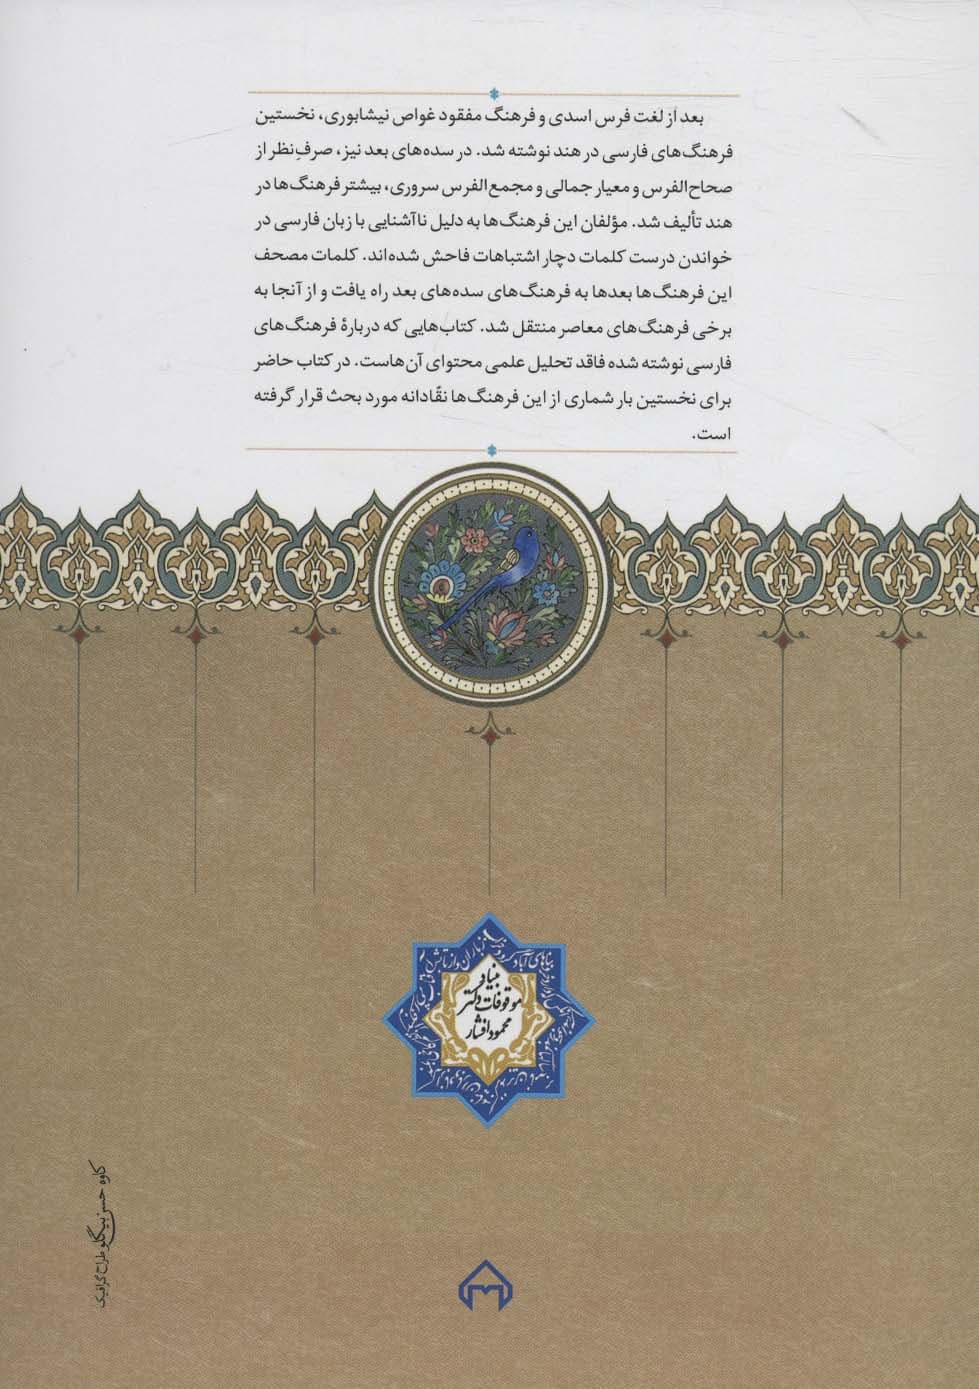 بعد از لغت فرس اسدی و فرهنگ مفقود غواص نیشابوری، نخستین
فرهنگ‌های فارسی در هند نوشته شد. در سده‌های بعد نیز، صرفِ‌نظر از
صحاح‌الفرس و معیار جمالی و مجمع‌الفرس سروری، بیشتر فرهنگ‌ها در
هند تألیف شد. مؤلفان این فرهنگ‌ها به دلیل ناآشنایی با زبان فارسی در
خواندن درست کلمات دچار اشتباهات فاحش شده‌اند. کلمات مصحف
این فرهنگ‌ها بعدها به فرهنگ‌های سده‌های بعد راه یافت و از آنجا به
برخی فرهنگ‌های معاصر منتقل شد. کتاب‌هایی که دربارهٔ فرهنگ‌های
فارسی نوشته شده فاقد تحلیل علمی محتوای آن‌هاست. در کتاب حاضر
برای نخستین بار شماری از این فرهنگ‌ها نقّادانه مورد بحث قرار گرفته
است.
بنیاد
موقوفات دکتر
محمود افشار
کاوه حسن بیگلو طراح گرافیک